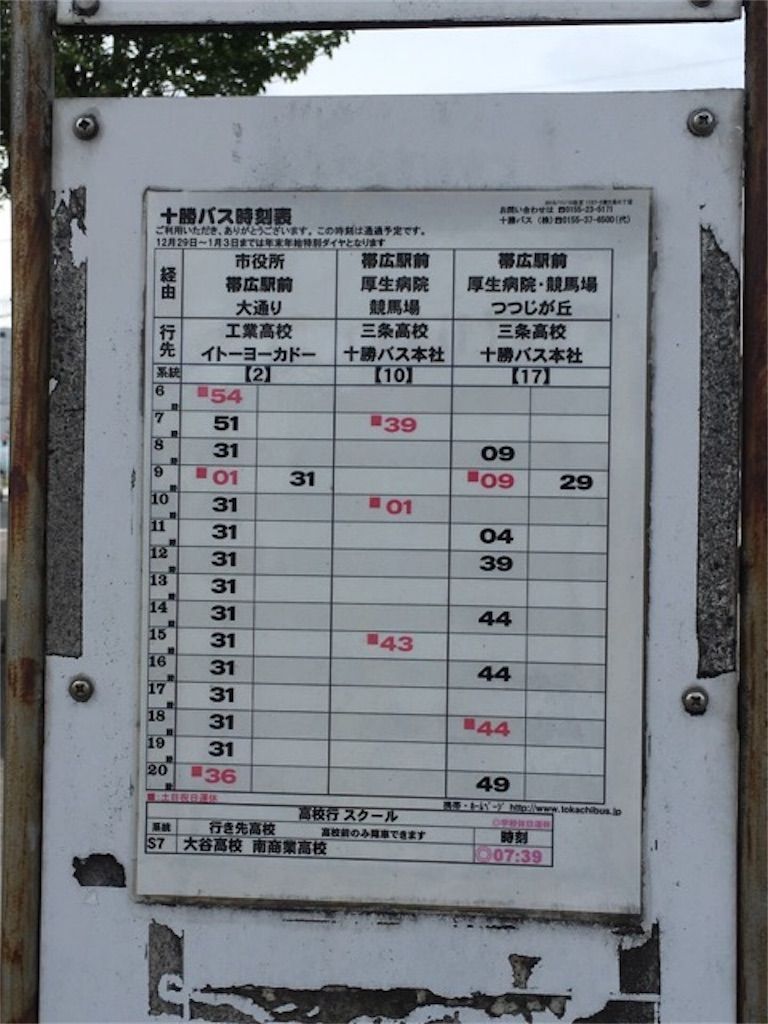 十勝バス時刻表
お問い合わせは ☎0155-23-5171
十勝バス (株)☎0155-37-6500(代)
ご利用いただき、ありがとうございます。この時刻は通過予定です。
12月29日～1月3日までは年末年始特別ダイヤとなります
経由 市役所 帯広駅前 大通り 帯広駅前 厚生病院 競馬場 帯広駅前 厚生病院・競馬場 つつじが丘
行先 工業高校 イトーヨーカドー 三条高校 十勝バス本社 三条高校 十勝バス本社
系統 【2】 【10】 【17】
6時 ■54
7時 51 ■39
8時 31 09
9時 ■01 31 ■09 29
10時 31 ■01
11時 31 04
12時 31 39
13時 31
14時 31 44
15時 31 ■43
16時 31 44
17時 31
18時 31 ■44
19時 31
20時 ■36 49
■:土日祝日運休
携帯・ﾎｰﾑﾍﾟｰｼﾞ http://www.tokachibus.jp
高校行 スクール
系統 行き先高校 高校前のみ降車できます 時刻
S7 大谷高校 南商業高校 ◎07:39